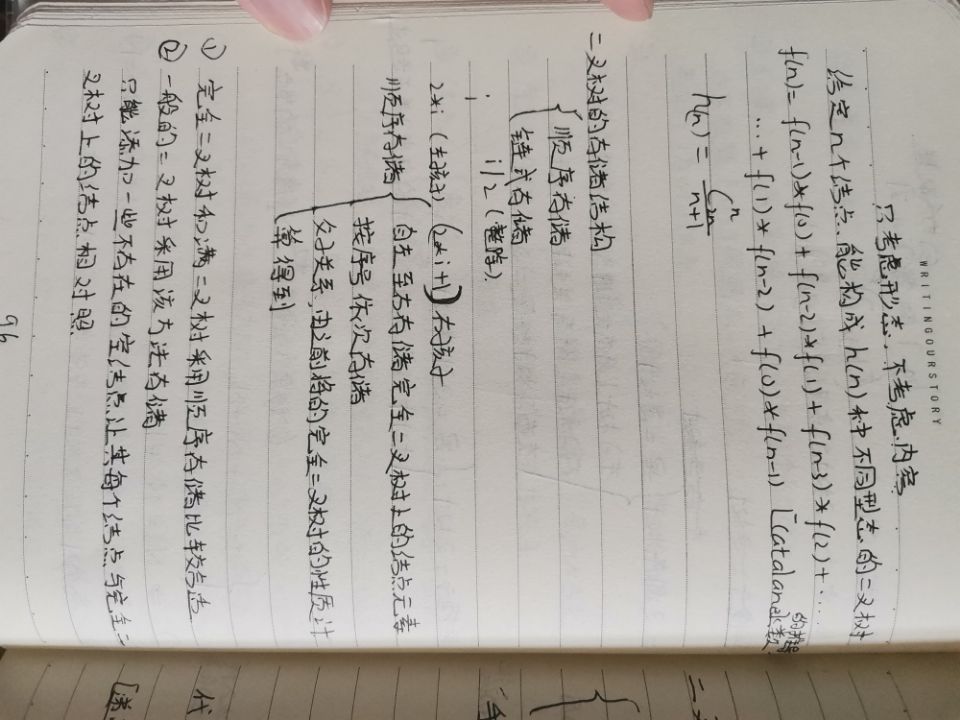 WRITINGOURSTORY
只考虑形态、不考虑内容
给定n个结点,能构成h(n)种不同型态的二叉树
f(n)= f(n-1)*f(0) + f(n-2)*f(1) + f(n-3)*f(2)+...
...+ f(1)*f(n-2) + f(0)*f(n-1) [Catalan数
h(n) = C2n^n / n+1
二叉树的存储结构
{顺序存储
链式存储
i/2 (整除)
i
2*i (左孩子) (2*i+1) 右孩子
顺序存储 {自左至右存储完全二叉树上的结点元素
按序号依次存储
父子关系,由之前将的完全二叉树的性质计
算得到
① 完全二叉树和满二叉树采用顺序存储比较合适
② 一般的二叉树采用该方法存储
只能添加一些不存在的空结点,让其每个结点与完全二
叉树上的结点相对照
96
二
{
代